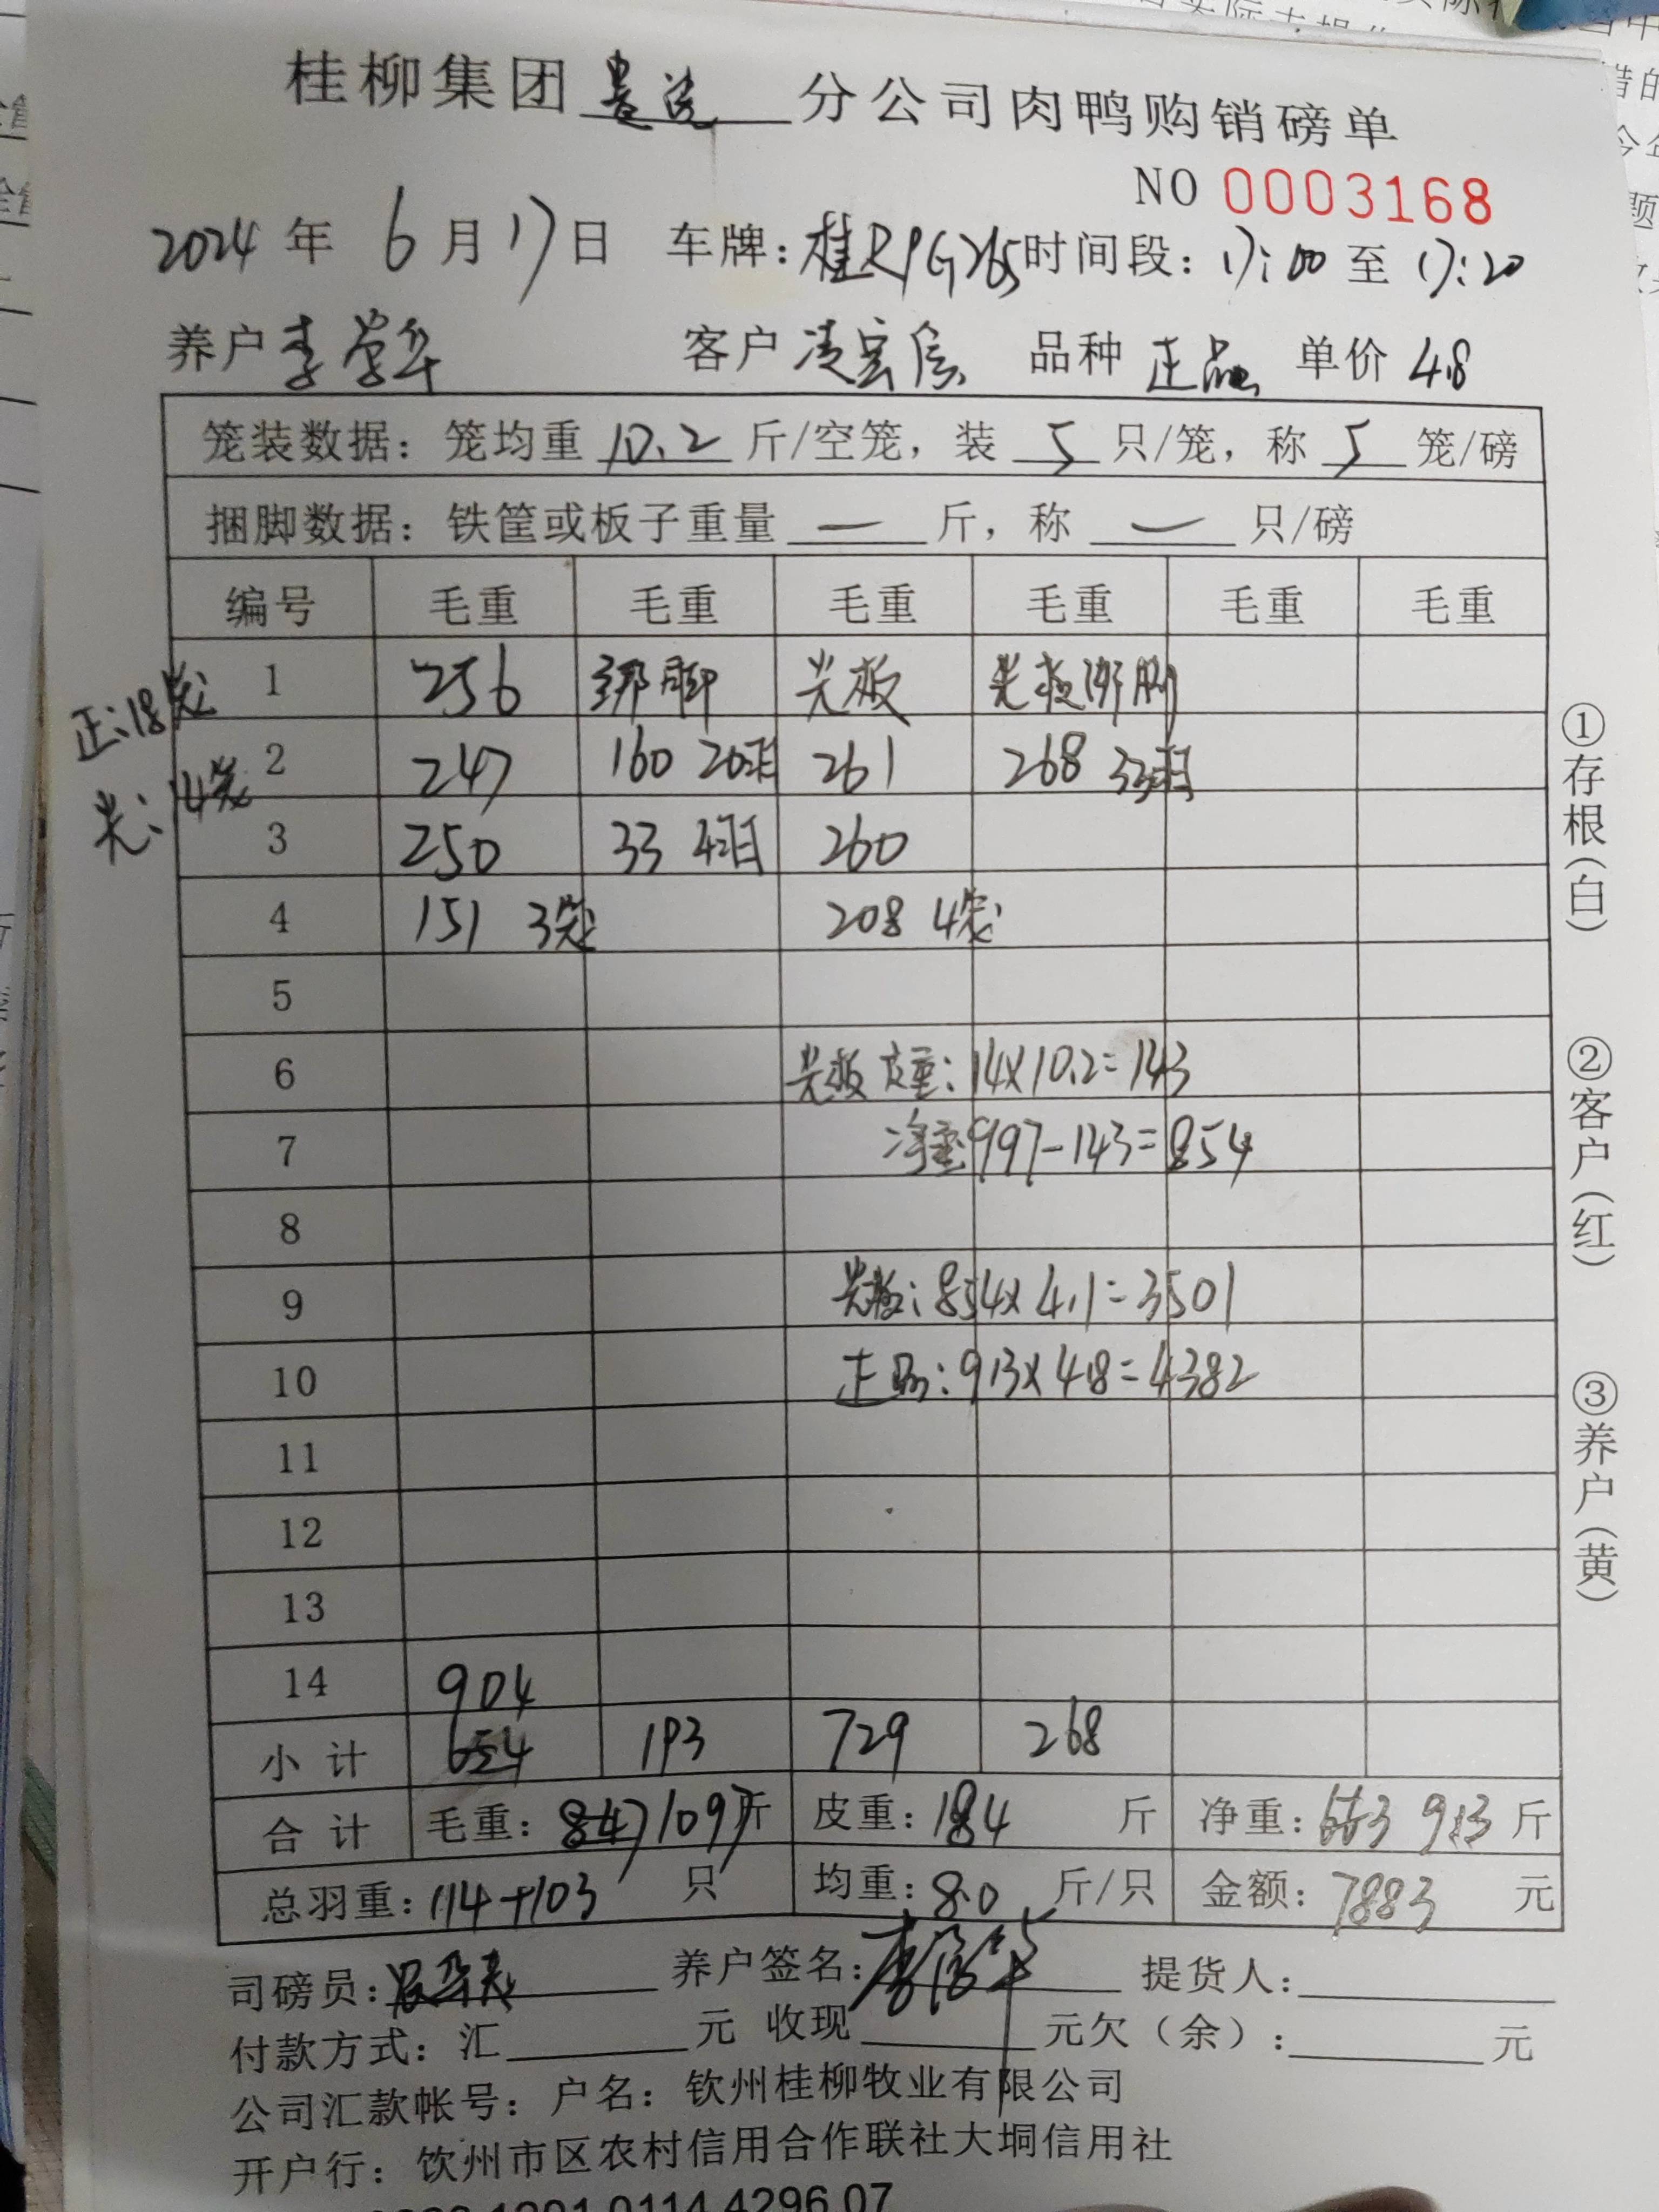 桂柳集团 分公司肉鸭购销磅单
NO 0003168
2024 年 6 月 17 日 车牌:桂RPG265 时间段:17:00 至 17:20
养户 李学华 客户 凌宏信 品种 正品 单价 4.8
笼装数据:笼均重 10.2 斤/空笼,装 5 只/笼,称 5 笼/磅
捆脚数据:铁筐或板子重量 — 斤,称 — 只/磅
编号 毛重 毛重 毛重 毛重 毛重 毛重
正:18笼
光:14笼
1 256 绑脚 光板 光板绑脚
2 247 160 20羽 261 268 33羽
3 250 33 4羽 260
4 151 3笼 208 4笼
5
6 光板皮重:14×10.2=143
7 净重997-143=854
8
9 光板:854×4.1=3501
10 正品:913×4.8=4382
11
12
13
14 904
小计 654 193 729 268
合计 毛重:847 1097斤 皮重:184 斤 净重:663 913 斤
总羽重:114+103 只 均重:8.0 斤/只 金额:7883 元
司磅员: 养户签名:李学华 提货人:
付款方式:汇 元 收现 元欠(余): 元
公司汇款帐号:户名:钦州桂柳牧业有限公司
开户行:钦州市区农村信用合作联社大垌信用社
1201 0114 4296 07
①存根(白)
②客户(红)
③养户(黄)